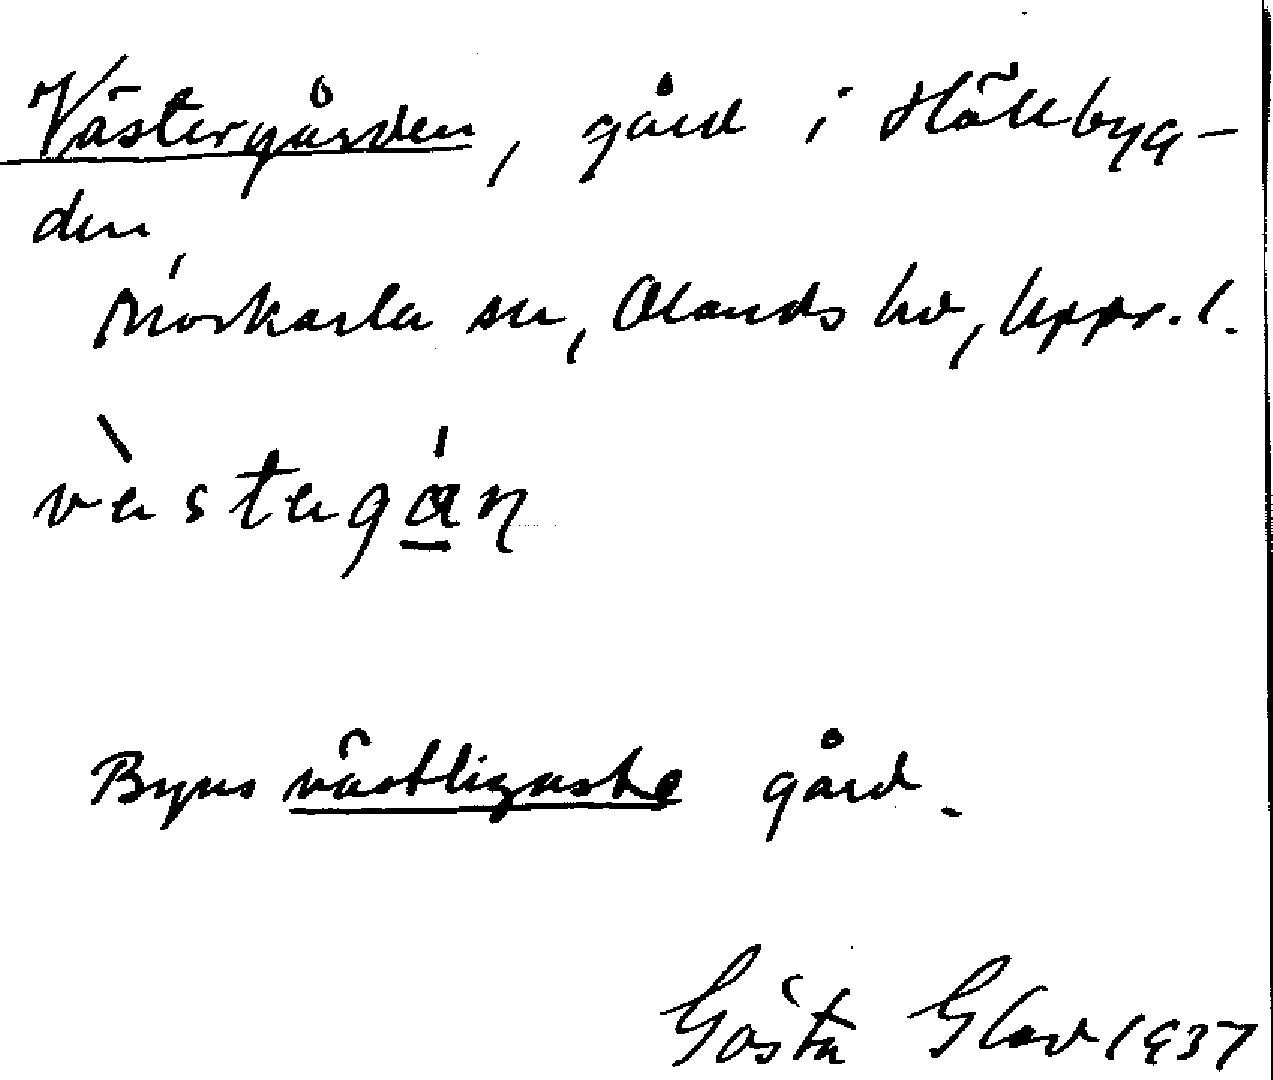 Västergården, gård i Hökebyg-
den,
Morkarla sn, Olands hd, Uppr. l.
västegån
Byns västligaste gård.
Gösta Glad 1937